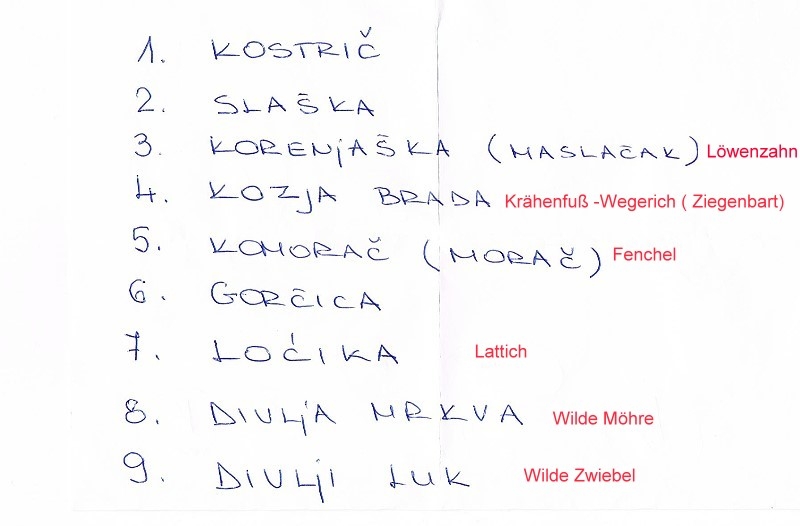 1. KOSTRIČ
2. SLAŠKA
3. KORENjAŠKA (MASLAČAK) Löwenzahn
4. KOZjA BRADA Krähenfuß -Wegerich ( Ziegenbart)
5. KOMORAČ (MORAČ) Fenchel
6. GORČICA
7. LOĆIKA Lattich
8. DIVLjA MRKVA Wilde Möhre
9. DIVLji LUK Wilde Zwiebel